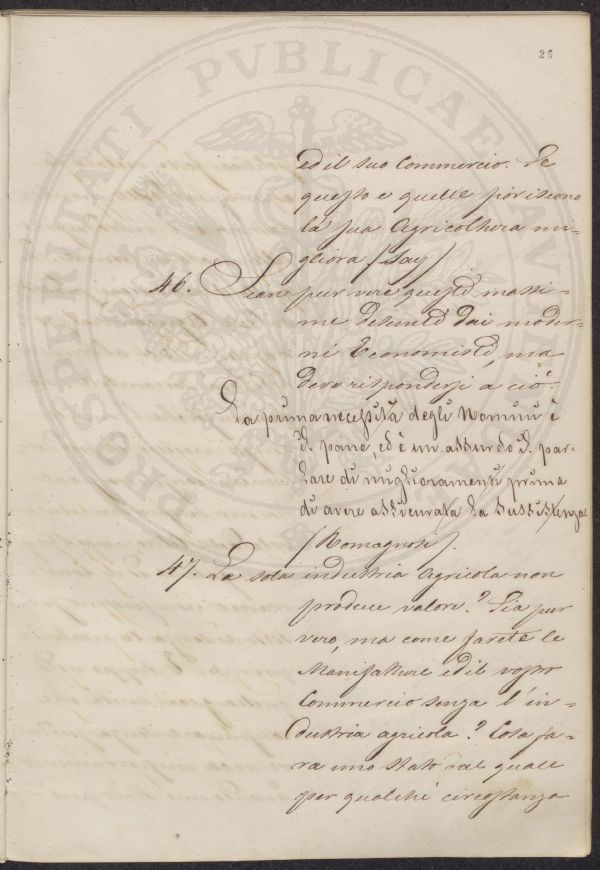 26
PROSPERITATI PVBLICAE AVGENDAE
ed il suo Commercio. Se
questo e quelle fioriscono
la sua Agricoltura mi-
gliora (Say)
46. Sien pur vere queste massi-
me desunte dai moder-
ni Economisti, ma
deve rispondersi a ciò:
La prima necessità degli Uomini è
il pane, ed è un assurdo il par-
lare di miglioramenti prima
di avere assicurata la sussistenza
(Romagnosi).
47. La sola industria Agricola non
produce valori? Sia pur
vero, ma come farete le
Manifatture ed il vostro
Commercio senza l'in-
dustria agricola? Cosa fa-
rà uno Stato nel quale
per qualche circostanza